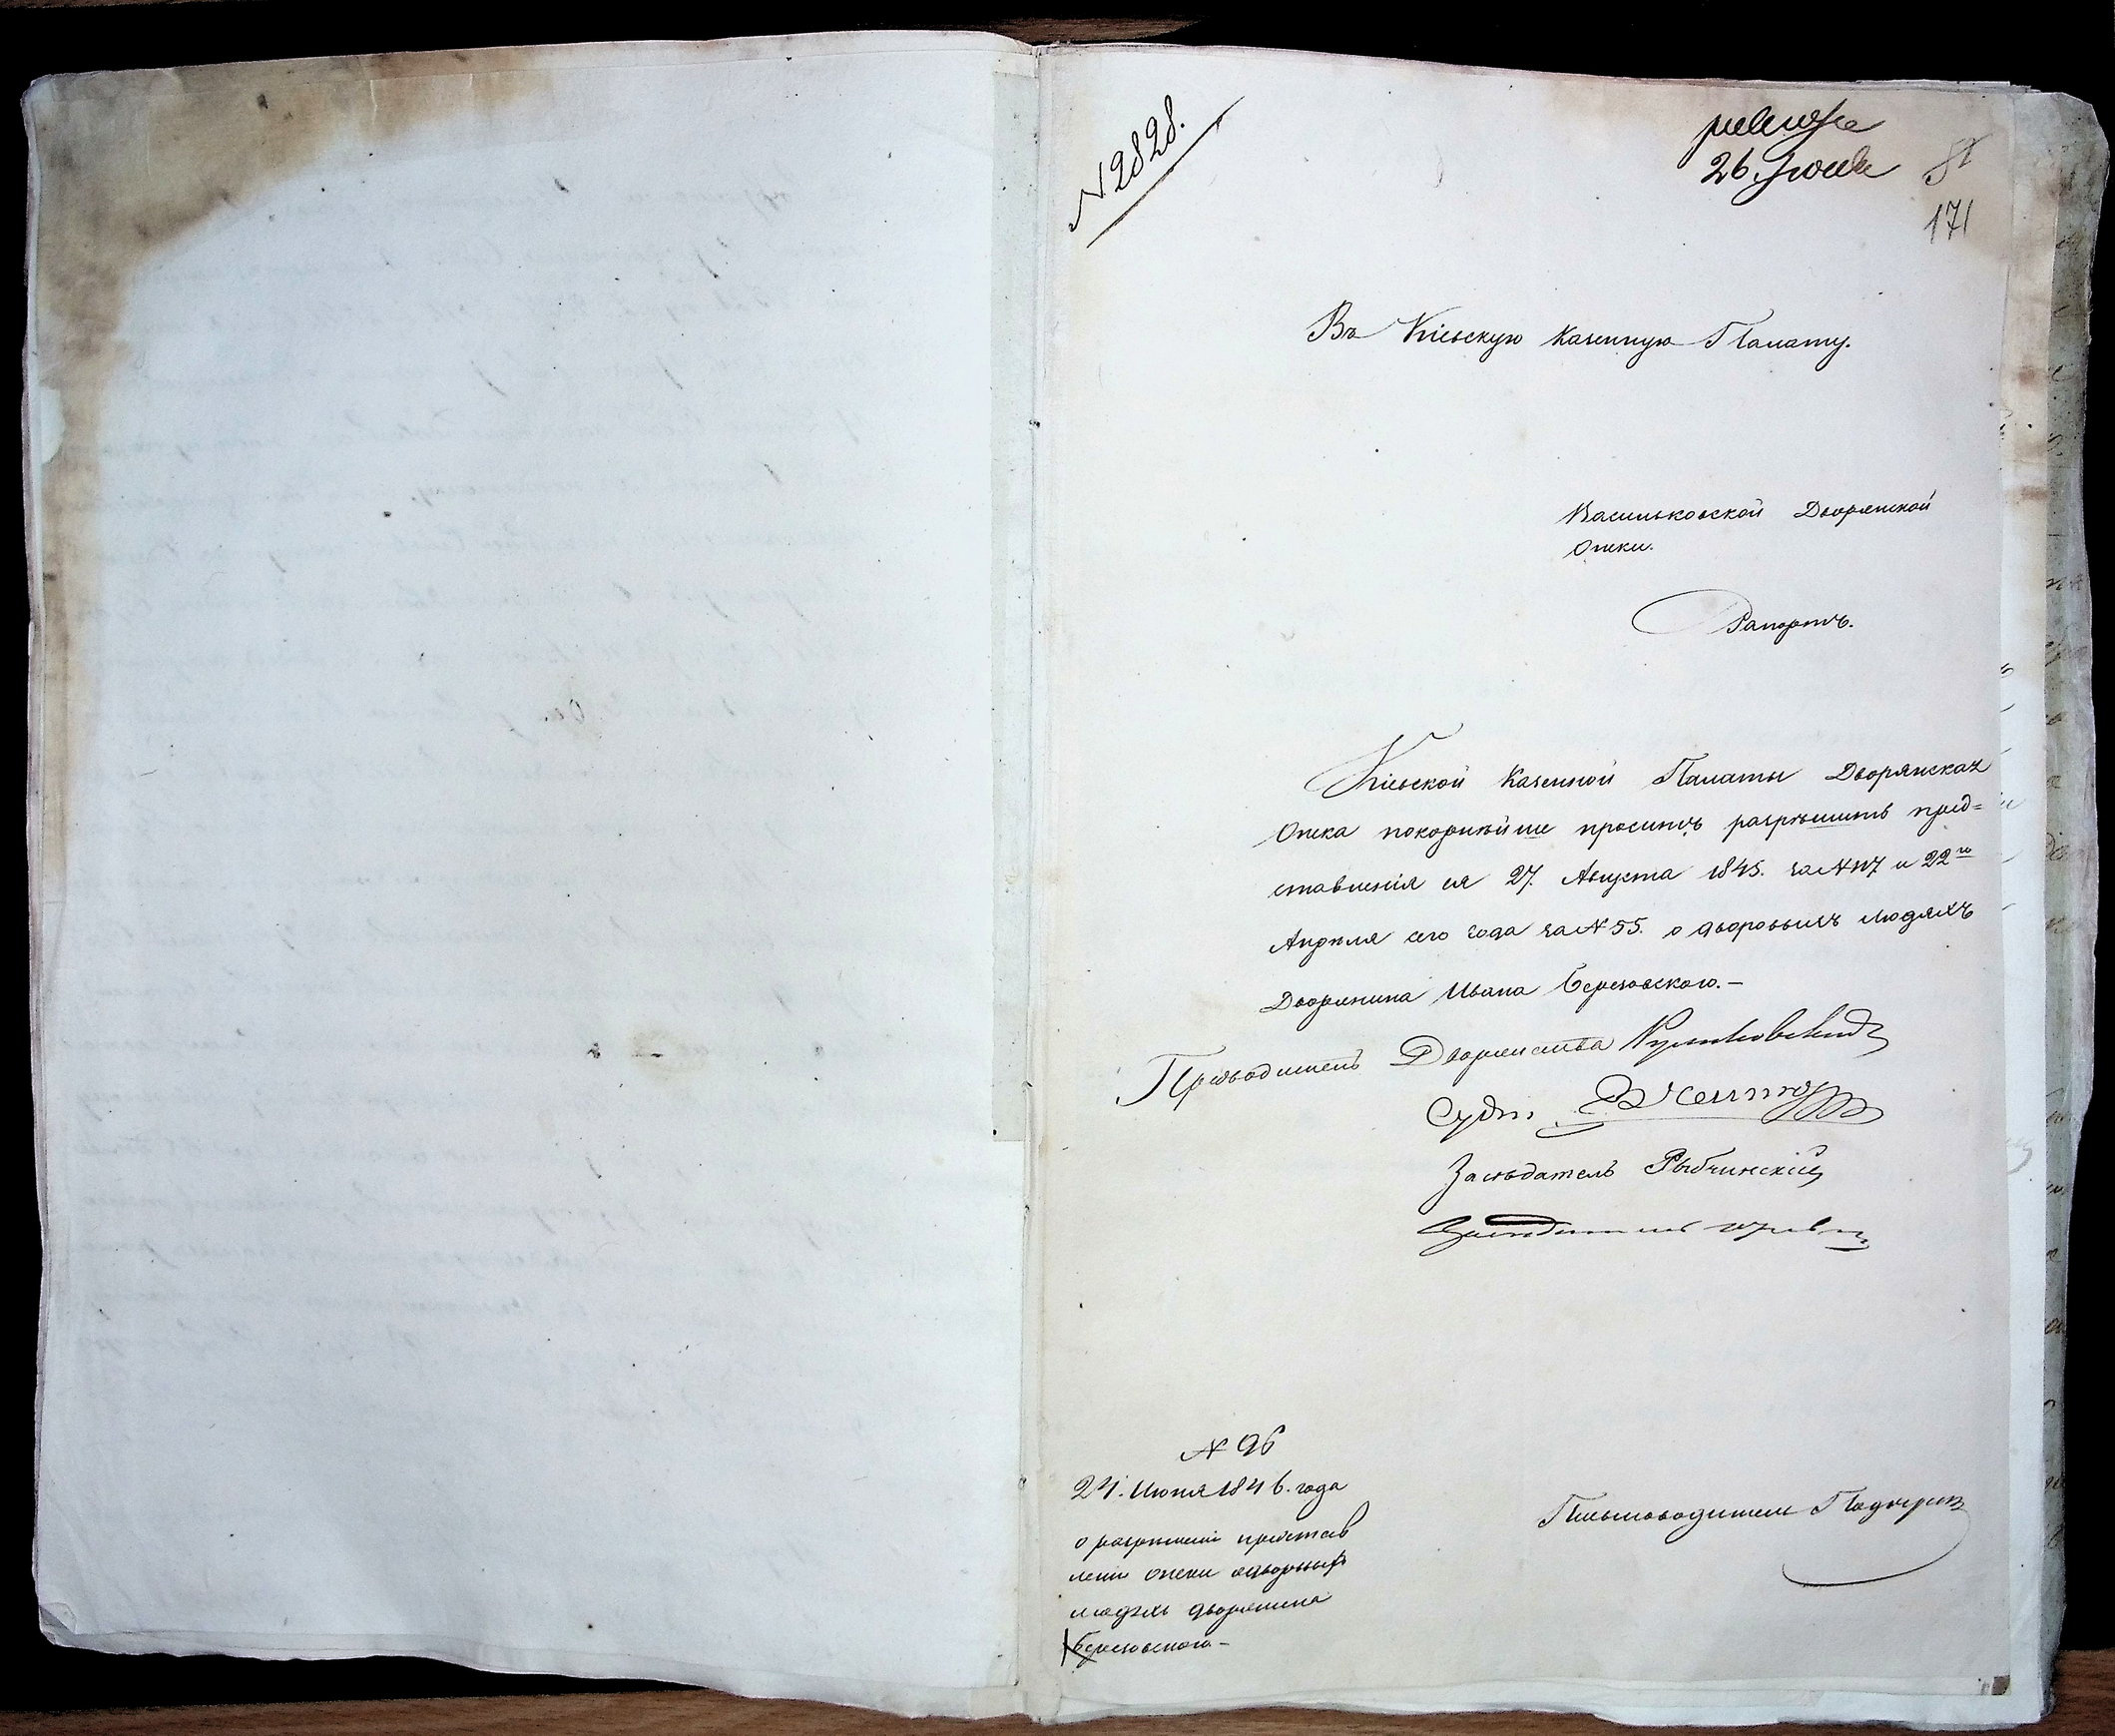 N 2828.
26. Июня
171
Въ Кіевскую Казенную Палату.
Васильковской Дворянской
Опеки.
Рапортъ.
Кіевской Казенной Палаты Дворянская
Опека покорнѣйше проситъ разрѣшить пред=
ставленія ея 27. Августа 1845. за N 117 и 22го
Апрѣля сего года за N 55. о дворовыхъ людяхъ
Дворянина Ивана Березовскаго.—
Предводитель Дворянства
Судья
Засѣдатель Рыбчинскій
Засѣдатель
N 96
24. Июня 1846. года
о разрѣшеніи представ
леніи опеки о дворовыхъ
людяхъ дворянина
Березовскаго—
Письмоводитель